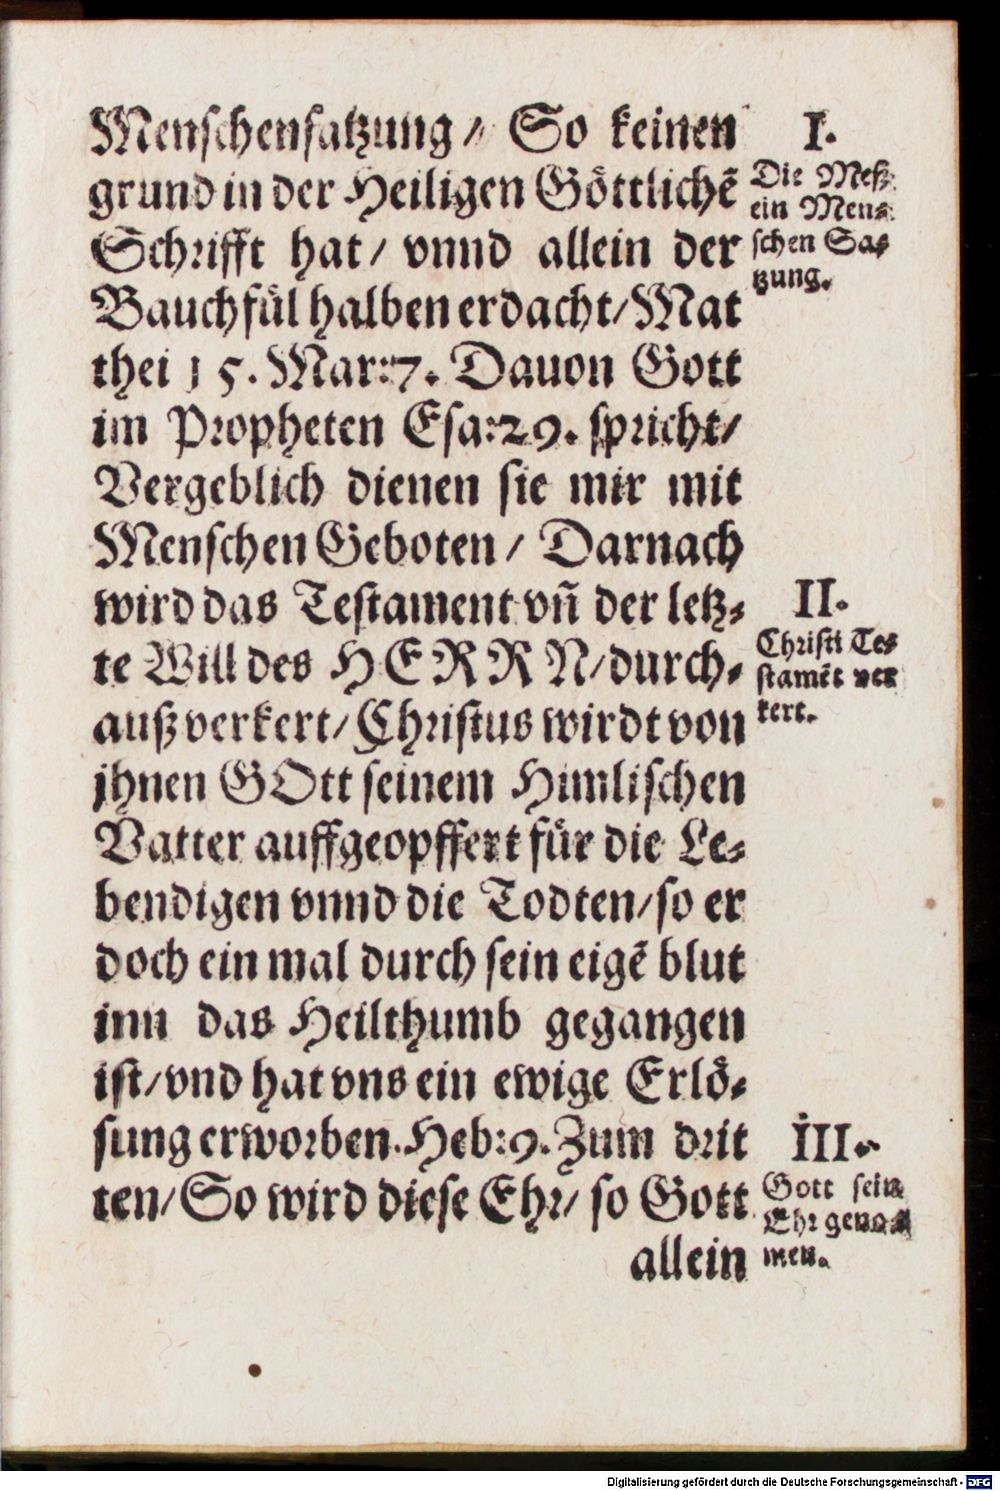 Menschensatzung / So keinen
grund in der Heiligen Göttlichẽ
Schrifft hat / vnnd allein der
Bauchfül halben erdacht / Mat
thei 15. Mar: 7. Dauon Gott
im Propheten Esa: 29. spricht /
Vergeblich dienen sie mir mit
Menschen Geboten / Darnach
wird das Testament vñ der letz⸗
te Will des HERRN / durch⸗
auß verkert / Christus wirdt von
jhnen GOtt seinem Himlischen
Vatter auffgeopffert für die Le⸗
bendigen vnnd die Todten / so er
doch ein mal durch sein eigẽ blut
inn das Heilthumb gegangen
ist / vnd hat vns ein ewige Erlö⸗
sung erworben. Heb: 9. Zum drit
ten / So wird diese Ehr / so Gott
allein
I.
Die Meß
ein Men⸗
schen Sa⸗
tzung.
II.
Christi Te⸗
stamẽt ver
kert.
III.
Gott sein
Ehr genom
men.
Digitalisierung gefördert durch die Deutsche Forschungsgemeinschaft - DFG